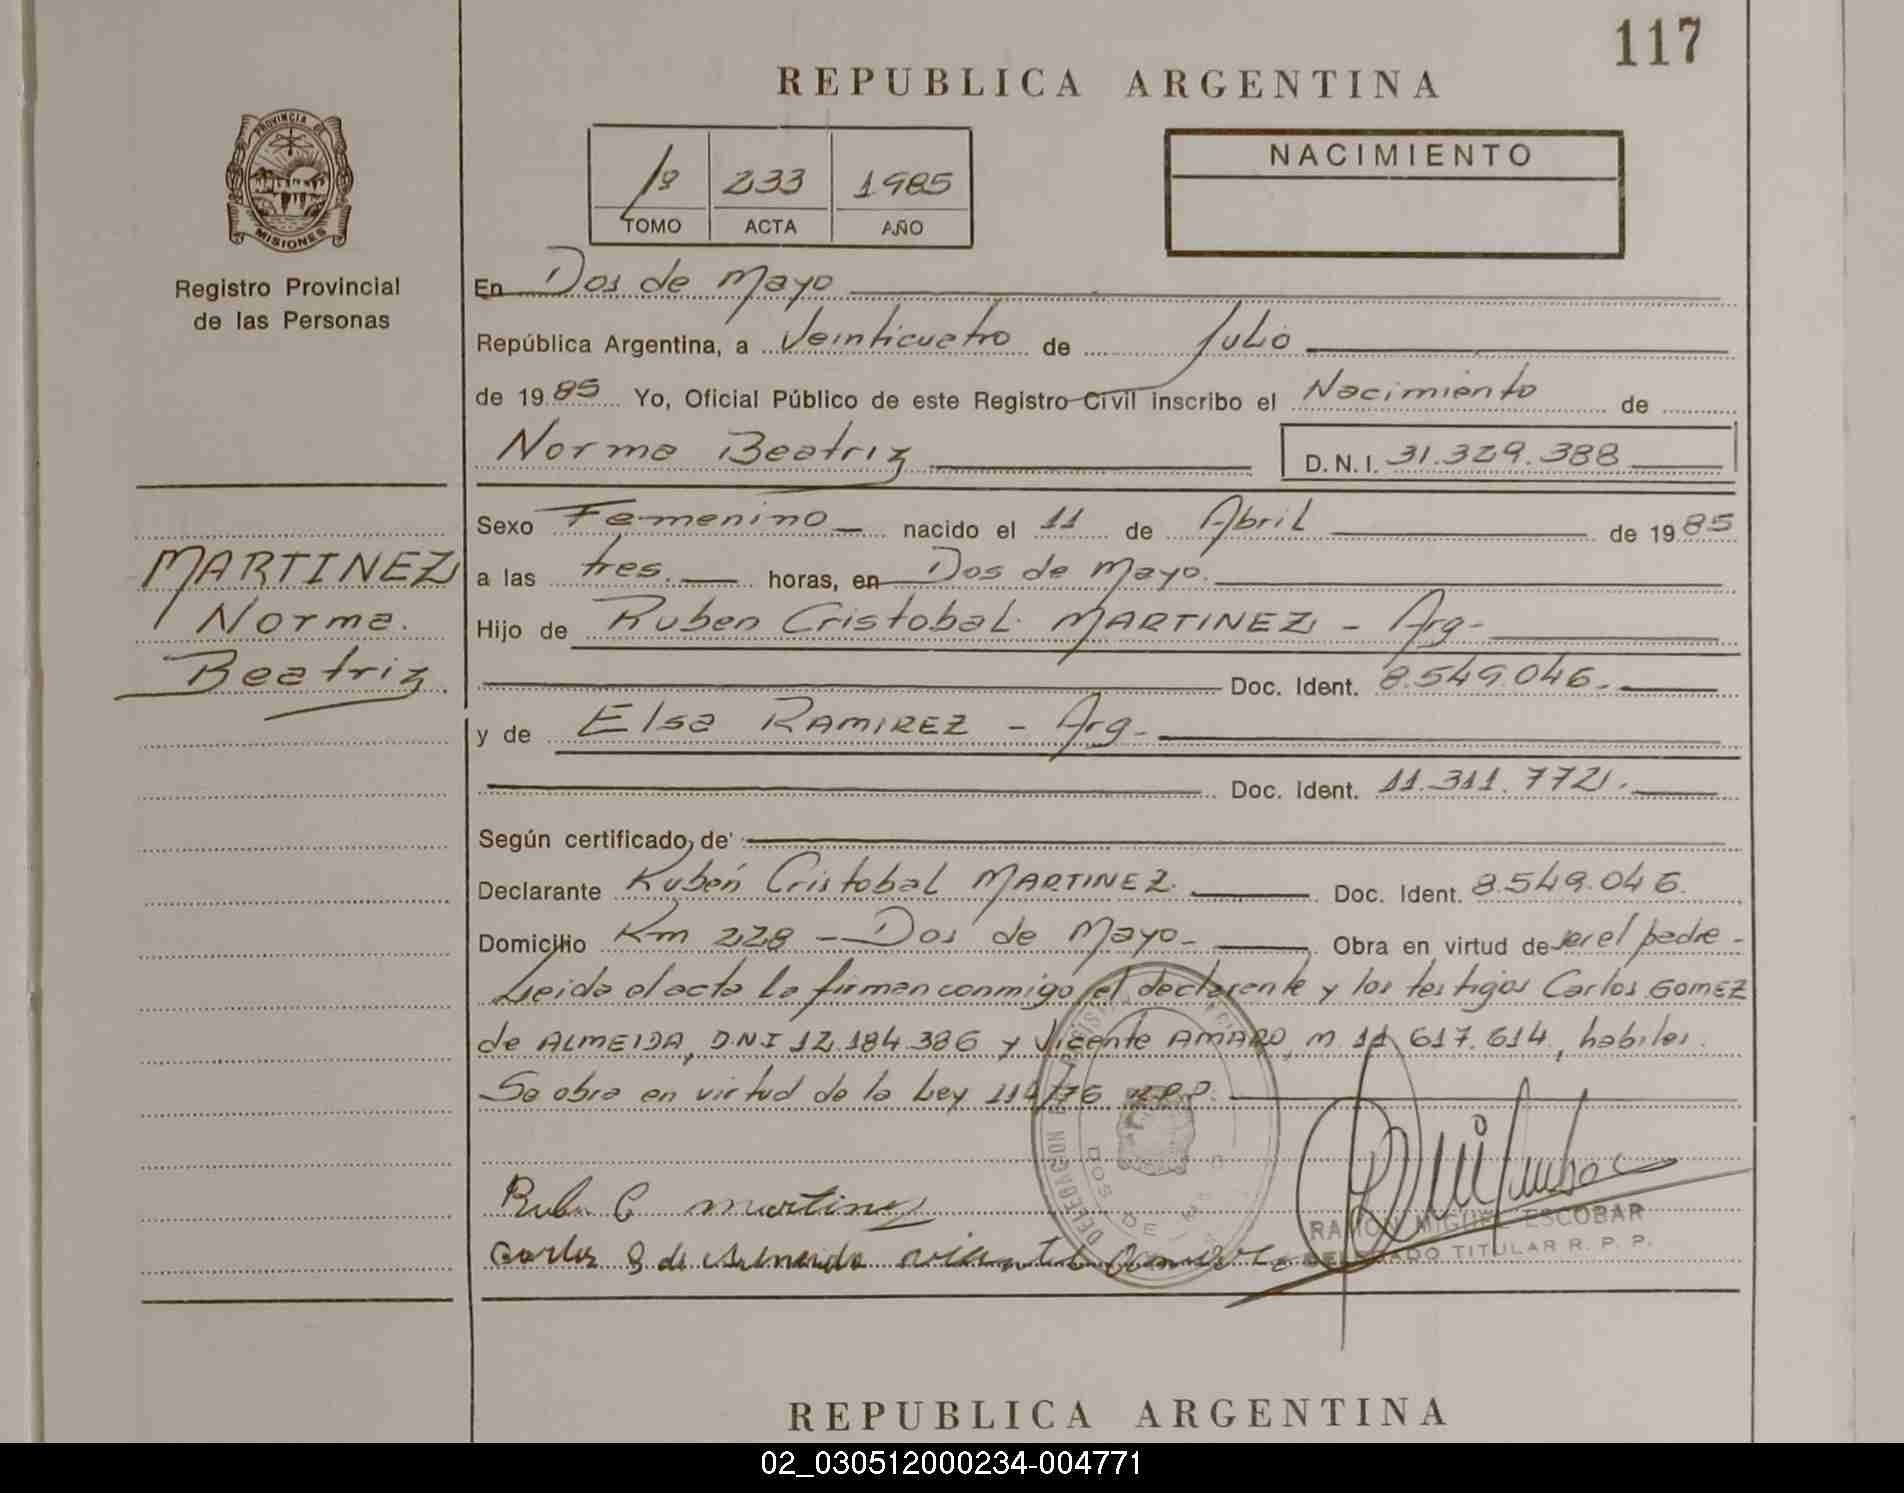 117
REPUBLICA ARGENTINA
PROVINCIA DE
MISIONES
Registro Provincial
de las Personas
1º 233 1985
TOMO ACTA AÑO
NACIMIENTO
En Dos de Mayo
República Argentina, a Veinticuatro de Julio
de 1985 Yo, Oficial Público de este Registro Civil inscribo el Nacimiento de
Norma Beatriz D.N.I. 31.329.388
MARTINEZ
Norma.
Beatriz
Sexo Femenino nacido el 11 de Abril de 1985
a las tres. horas, en Dos de Mayo.
Hijo de Ruben Cristobal MARTINEZ - Arg-
Doc. Ident. 8.549.046.
y de Elsa RAMIREZ - Arg-
Doc. Ident. 11.311.772.
Según certificado de
Declarante Rubén Cristobal MARTINEZ. Doc. Ident. 8.549.046.
Domicilio Km 228 - Dos de Mayo- Obra en virtud de ser el padre-
Leida el acta la firman conmigo, el declarante y los testigos Carlos GOMEZ
de ALMEIDA, DNI 12.184.386 y Vicente AMARO, M 11 617.614, habiles.
Se obra en virtud de la Ley
DELEGACION
DOS DE
Rubn C martinez
Carlos G de
RAMON MIGUEL ESCOBAR
DELEGADO TITULAR R. P. P.
REPUBLICA ARGENTINA
02_030512000234-004771